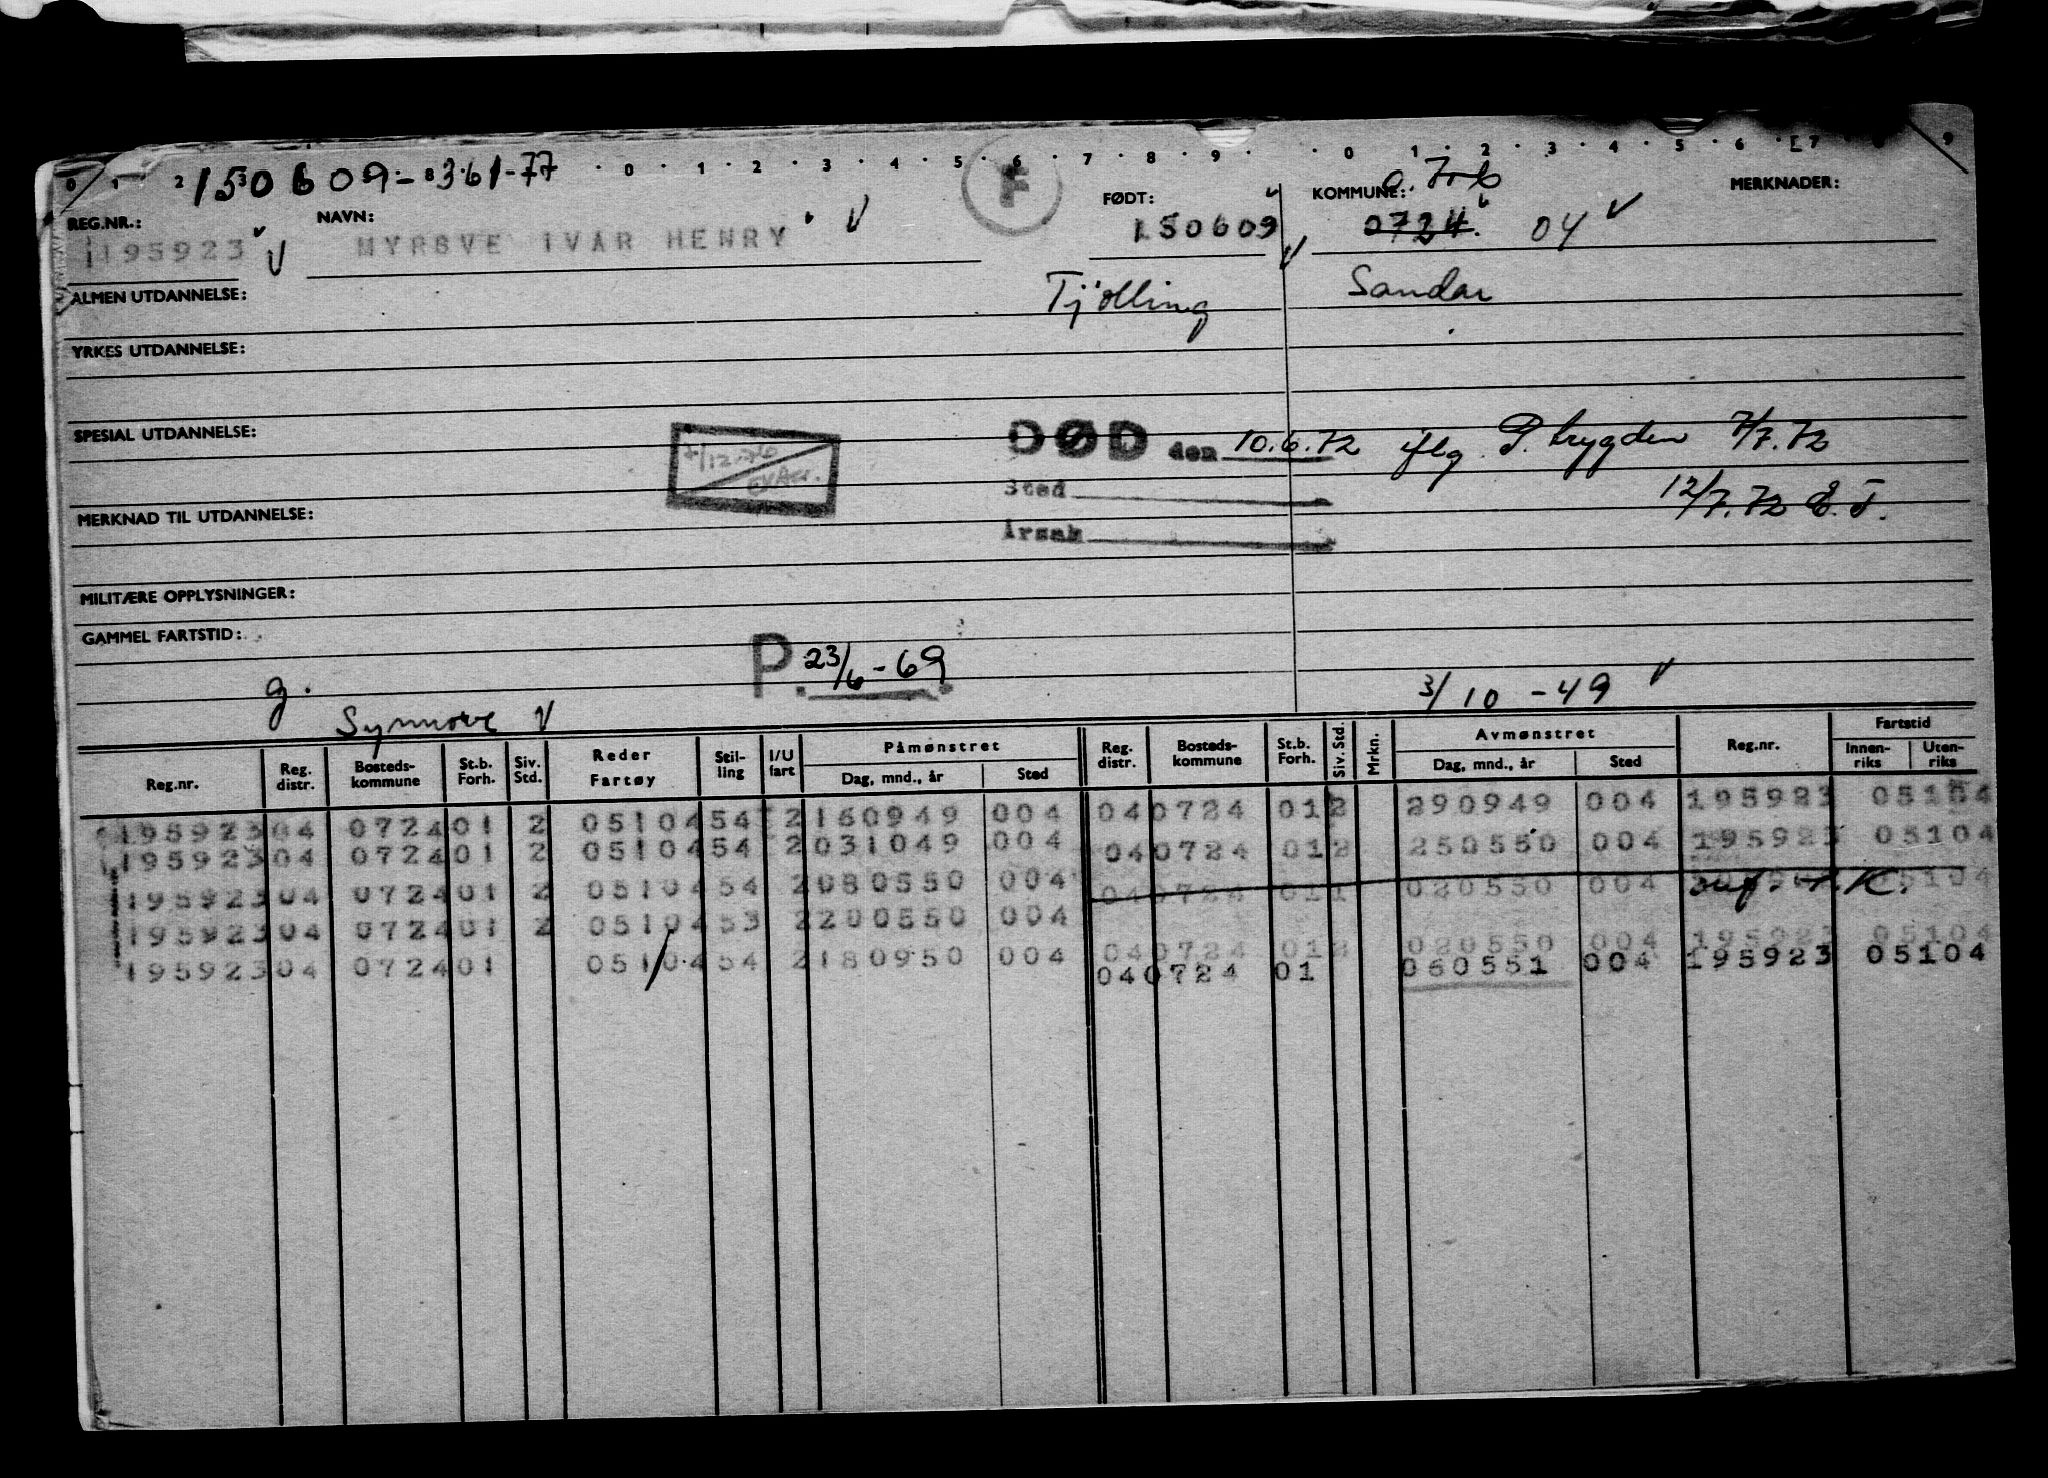 0 1 2 3 8 0 1 2 3 4 5 6 7 8 9 0 1 2 3 4 5 6 7 9
150609-361-77
F
REG.NR.: NAVN: FØDT: KOMMUNE: MERKNADER:
195923 MYRSVE IVAR HENRY 150609 0724 04
ALMEN UTDANNELSE: Tjølling Sandar
YRKES UTDANNELSE:
SPESIAL UTDANNELSE: DØD den 10.6.72 iflg. P. trygden 7/7.72
7/12.76
Sted 12/7.72 E.T.
MERKNAD TIL UTDANNELSE: Årsak
MILITÆRE OPPLYSNINGER:
GAMMEL FARTSTID:
P. 23/6-69
g. 3/10-49
Synnøve
Reg.nr. Reg. distr. Bosteds- kommune St.b. Forh. Siv. Std. Reder Fartøy Stil- ling I/U fart Påmønstret Dag, mnd., år Sted Reg. distr. Bosteds- kommune St.b. Forh. Siv. Std. Mrkn. Avmønstret Dag, mnd., år Sted Reg.nr. Fartstid Innen- riks Uten- riks
195923 04 0724 01 2 05104 54 2 160949 004 04 0724 01 2 290949 004 195923 05104
195923 04 0724 01 2 05104 54 2 031049 004 04 0724 01 2 250550 004 195923 05104
195923 04 0724 01 2 05104 54 2 080550 004 04 0724 01 1 020550 004 05104
195923 04 0724 01 2 05104 53 2 200550 004 04 0724 01 2 020550 004 195923 05104
195923 04 0724 01 05104 54 2 180950 004 04 0724 01 060551 004 195923 05104